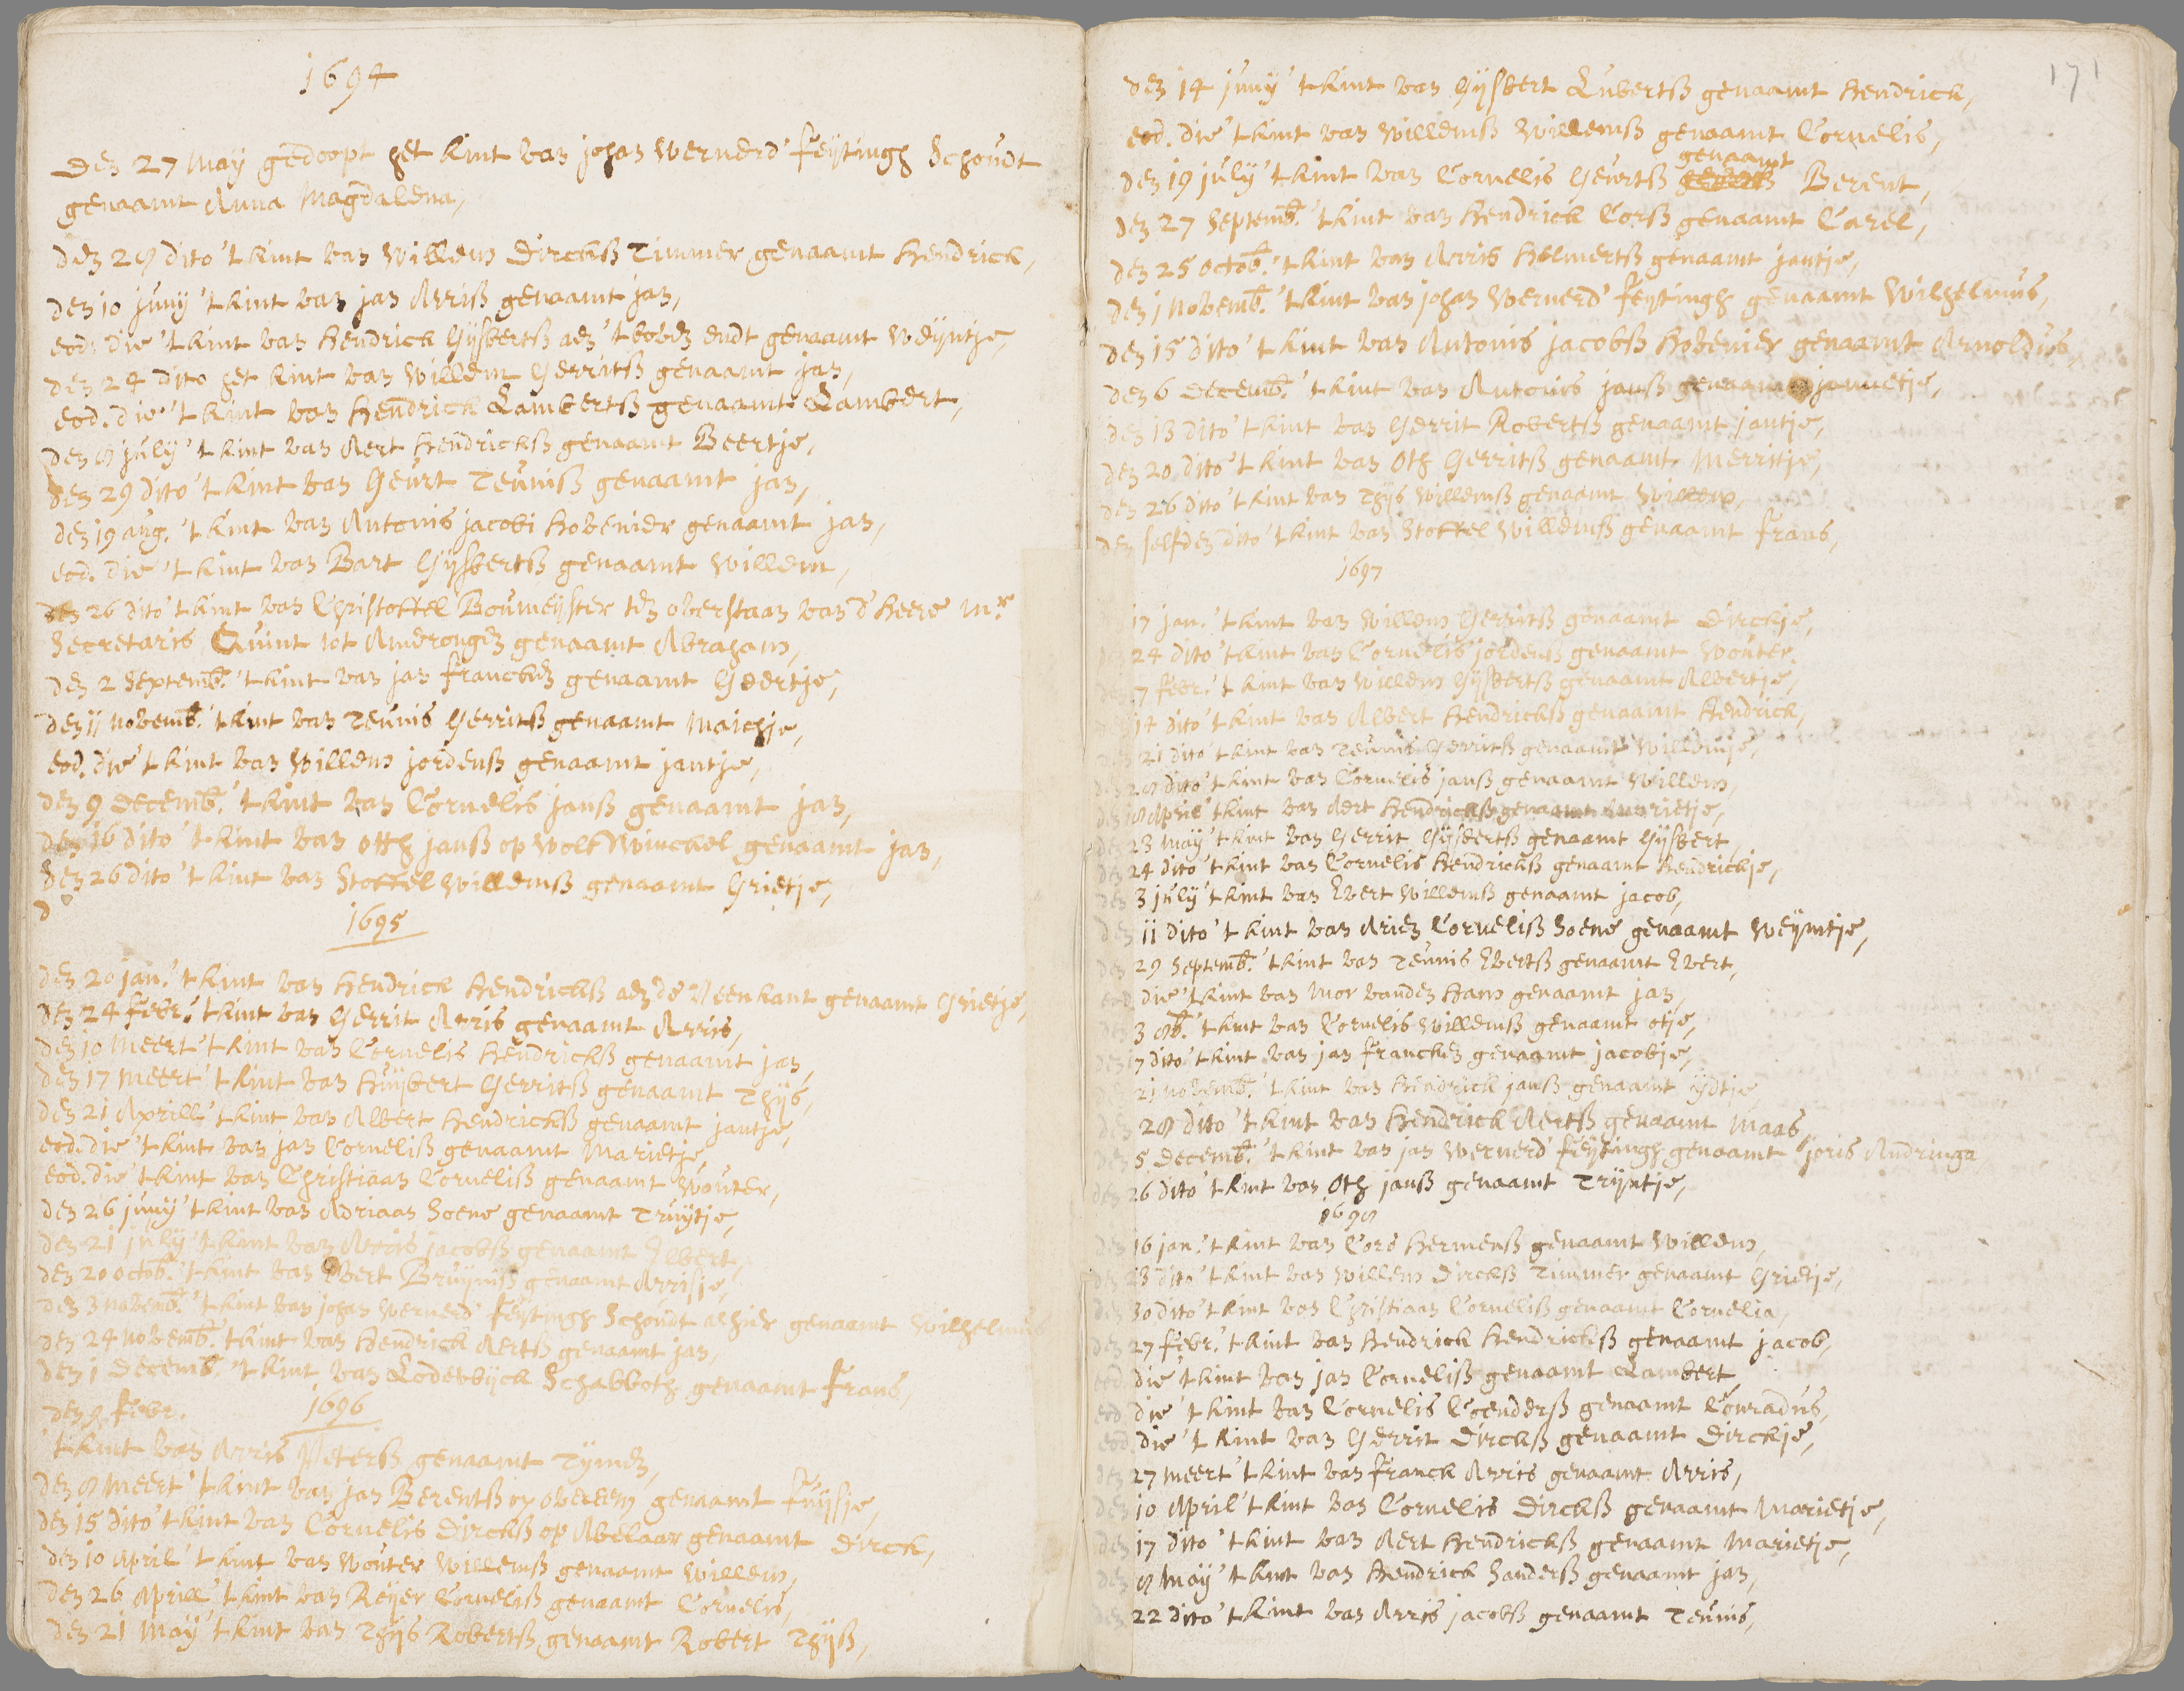 1694
Den 27 May gedoopt het kint van johan Wernerd Feytingh Schoudt
genaamt Anna Magdalena,
den 28 dito 't kint van Willem Dirckß Timmer genaamt Hendrick,
den 10 juny 't kint van jan Arriß genaamt jan,
eod. die 't kint van Hendrick Gijsbertß aen 't boven endt genaamt Weyntje,
den 24 dito het kint van Willem Gerritß genaamt jan,
eod. die 't kint van Hendrick Lambertß genaamt Lambert,
den 8 july 't kint van Aert Hendrickß genaamt Beertje,
den 29 dito 't kint van Geurt Teuniß genaamt jan,
den 19 aug. 't kint van Antonis jacobi Hovenier genaamt jan,
eod. die 't kint van Bart Gijsbertß genaamt Willem,
den 26 dito 't kint van Christoffel Boumeyster ten overstaan van d' Heere Mr.
Secretaris Quint tot Amerongen genaamt Abraham,
den 2 Septemb. 't kint van jan Francken genaamt Geertje,
den 11 Novemb. 't kint van Teunis Gerritß genaamt Maichje,
eod. die 't kint van Willem jordenß genaamt jantje,
den 9 Decemb. 't kint van Cornelis janß genaamt jan,
den 16 dito 't kint van Otth janß op Wolfswinckel genaamt jan,
den 26 dito 't kint van Stoffel Willemß genaamt Grietje,
d
1695
den 20 jan. 't kint van Hendrick Hendrickß aen de Veenkant genaamt Grietje,
den 24 febr. 't kint van Gerrit Arris genaamt Arris,
den 10 Meert 't kint van Cornelis Hendrickß genaamt jan,
den 17 Meert 't kint van Huijbert Gerritß genaamt Thijs,
den 21 Aprill 't kint van Albert Hendrickß genaamt jantje,
eod. die 't kint van jan Corneliß genaamt Marietje,
eod. die 't kint van Christiaan Corneliß genaamt Wouter,
den 26 juny 't kint van Adriaan Soene genaamt Truytje,
den 21 july 't kint van Arris jacobß genaamt Elbert,
den 20 Octob. 't kint van Evert Bruyniß genaamt Arrisje,
den 3 Novemb. 't kint van johan Wernerd Feytingh Schoudt alhier genaamt Wilhelmus
den 24 Novemb. 't kint van Hendrick Aertß genaamt jan,
den 1 Decemb. 't kint van Lodewyck Schabboth genaamt Frans,
1696
den 9 Febr.
't kint van Arris Peterß genaamt Tymen,
den 8 Meert 't kint van jan Berentß op Overeem genaamt Fuysje,
den 15 dito 't kint van Cornelis Dirckß op Abelaar genaamt Dirck,
den 10 April 't kint van Wouter Willemß genaamt Willem,
den 26 Aprill 't kint van Reyer Corneliß genaamt Cornelis,
den 21 May 't kint van Thijs Robertß genaamt Robert Thijß,
171
den 14 juny 't kint van Gijsbert Lubertß genaamt Hendrick,
eod. die 't kint van Willemß Willemß genaamt Cornelis,
genaamt
den 19 july 't kint van Cornelis Geurtß Berent,
den 27 Septemb. 't kint van Hendrick Corß genaamt Carel,
den 25 Octob. 't kint van Arris Helmertß genaamt jantje,
den 1 Novemb. 't kint van johan Wernerd Feytingh genaamt Wilhelmus,
den 15 dito 't kint van Antonis jacobß Hovenier genaamt Arnoldus,
den 6 Decemb. 't kint van Antonis janß genaamt jannetje,
den 13 dito 't kint van Gerrit Robertß genaamt jantje,
den 20 dito 't kint van Oth Gerritß genaamt Merritje,
den 26 dito 't kint van Thijs Willemß genaamt Willem,
den selfden dito 't kint van Stoffel Willemß genaamt Frans,
1697
17 jan. 't kint van Willem Gerritß genaamt Dirckje,
24 dito 't kint van Cornelis jordenß genaamt Wouter,
den 7 febr. 't kint van Willem Gijsbertß genaamt Albertje,
den 14 dito 't kint van Albert Hendrickß genaamt Hendrick,
den 21 dito 't kint van Teunis Gerritß genaamt Willemje,
den 28 dito 't kint van Cornelis janß genaamt Willem,
den 18 April 't kint van Aert Hendrickß genaamt Marietje,
den 23 May 't kint van Gerrit Gijsbertß genaamt Gijsbert,
den 24 dito 't kint van Cornelis Hendrickß genaamt Hendrickje,
den 3 july 't kint van Evert Willemß genaamt jacob,
den 11 dito 't kint van Arien Corneliß Soene genaamt Weyntje,
den 29 Septemb. 't kint van Teunis Evertß genaamt Evert,
eod. die 't kint van Mor vanden Ham genaamt jan,
den 3 8b. 't kint van Cornelis Willemß genaamt Otje,
den 17 dito 't kint van jan Francken genaamt jacobje,
21 Novemb. 't kint van Hendrick janß genaamt ydtje,
den 28 dito 't kint van Hendrick Aertß genaamt Maas,
den 5 Decemb. 't kint van jan Wernerd Feytingh genaamt joris Andringa,
den 26 dito 't kint van Oth janß genaamt Trijntje,
1698
den 16 jan. 't kint van Cors Hermenß genaamt Willem,
den 23 dito 't kint van Willem Dirckß Timmer genaamt Grietje,
den 30 dito 't kint van Christiaan Corneliß genaamt Cornelia,
den 27 febr. 't kint van Hendrick Hendrickß genaamt jacob,
eod. die 't kint van jan Corneliß genaamt Lambert,
eod. die 't kint van Cornelis Coenderß genaamt Conradus,
eod. die 't kint van Gerrit Dirckß genaamt Dirckje,
den 27 Meert 't kint van Franck Arris genaamt Arris,
den 10 April 't kint van Cornelis Dirckß genaamt Marietje,
den 17 dito 't kint van Aert Hendrickß genaamt Marietje,
den 8 May 't kint van Hendrick Sanderß genaamt jan,
den 22 dito 't kint van Arris jacobß genaamt Teunis,